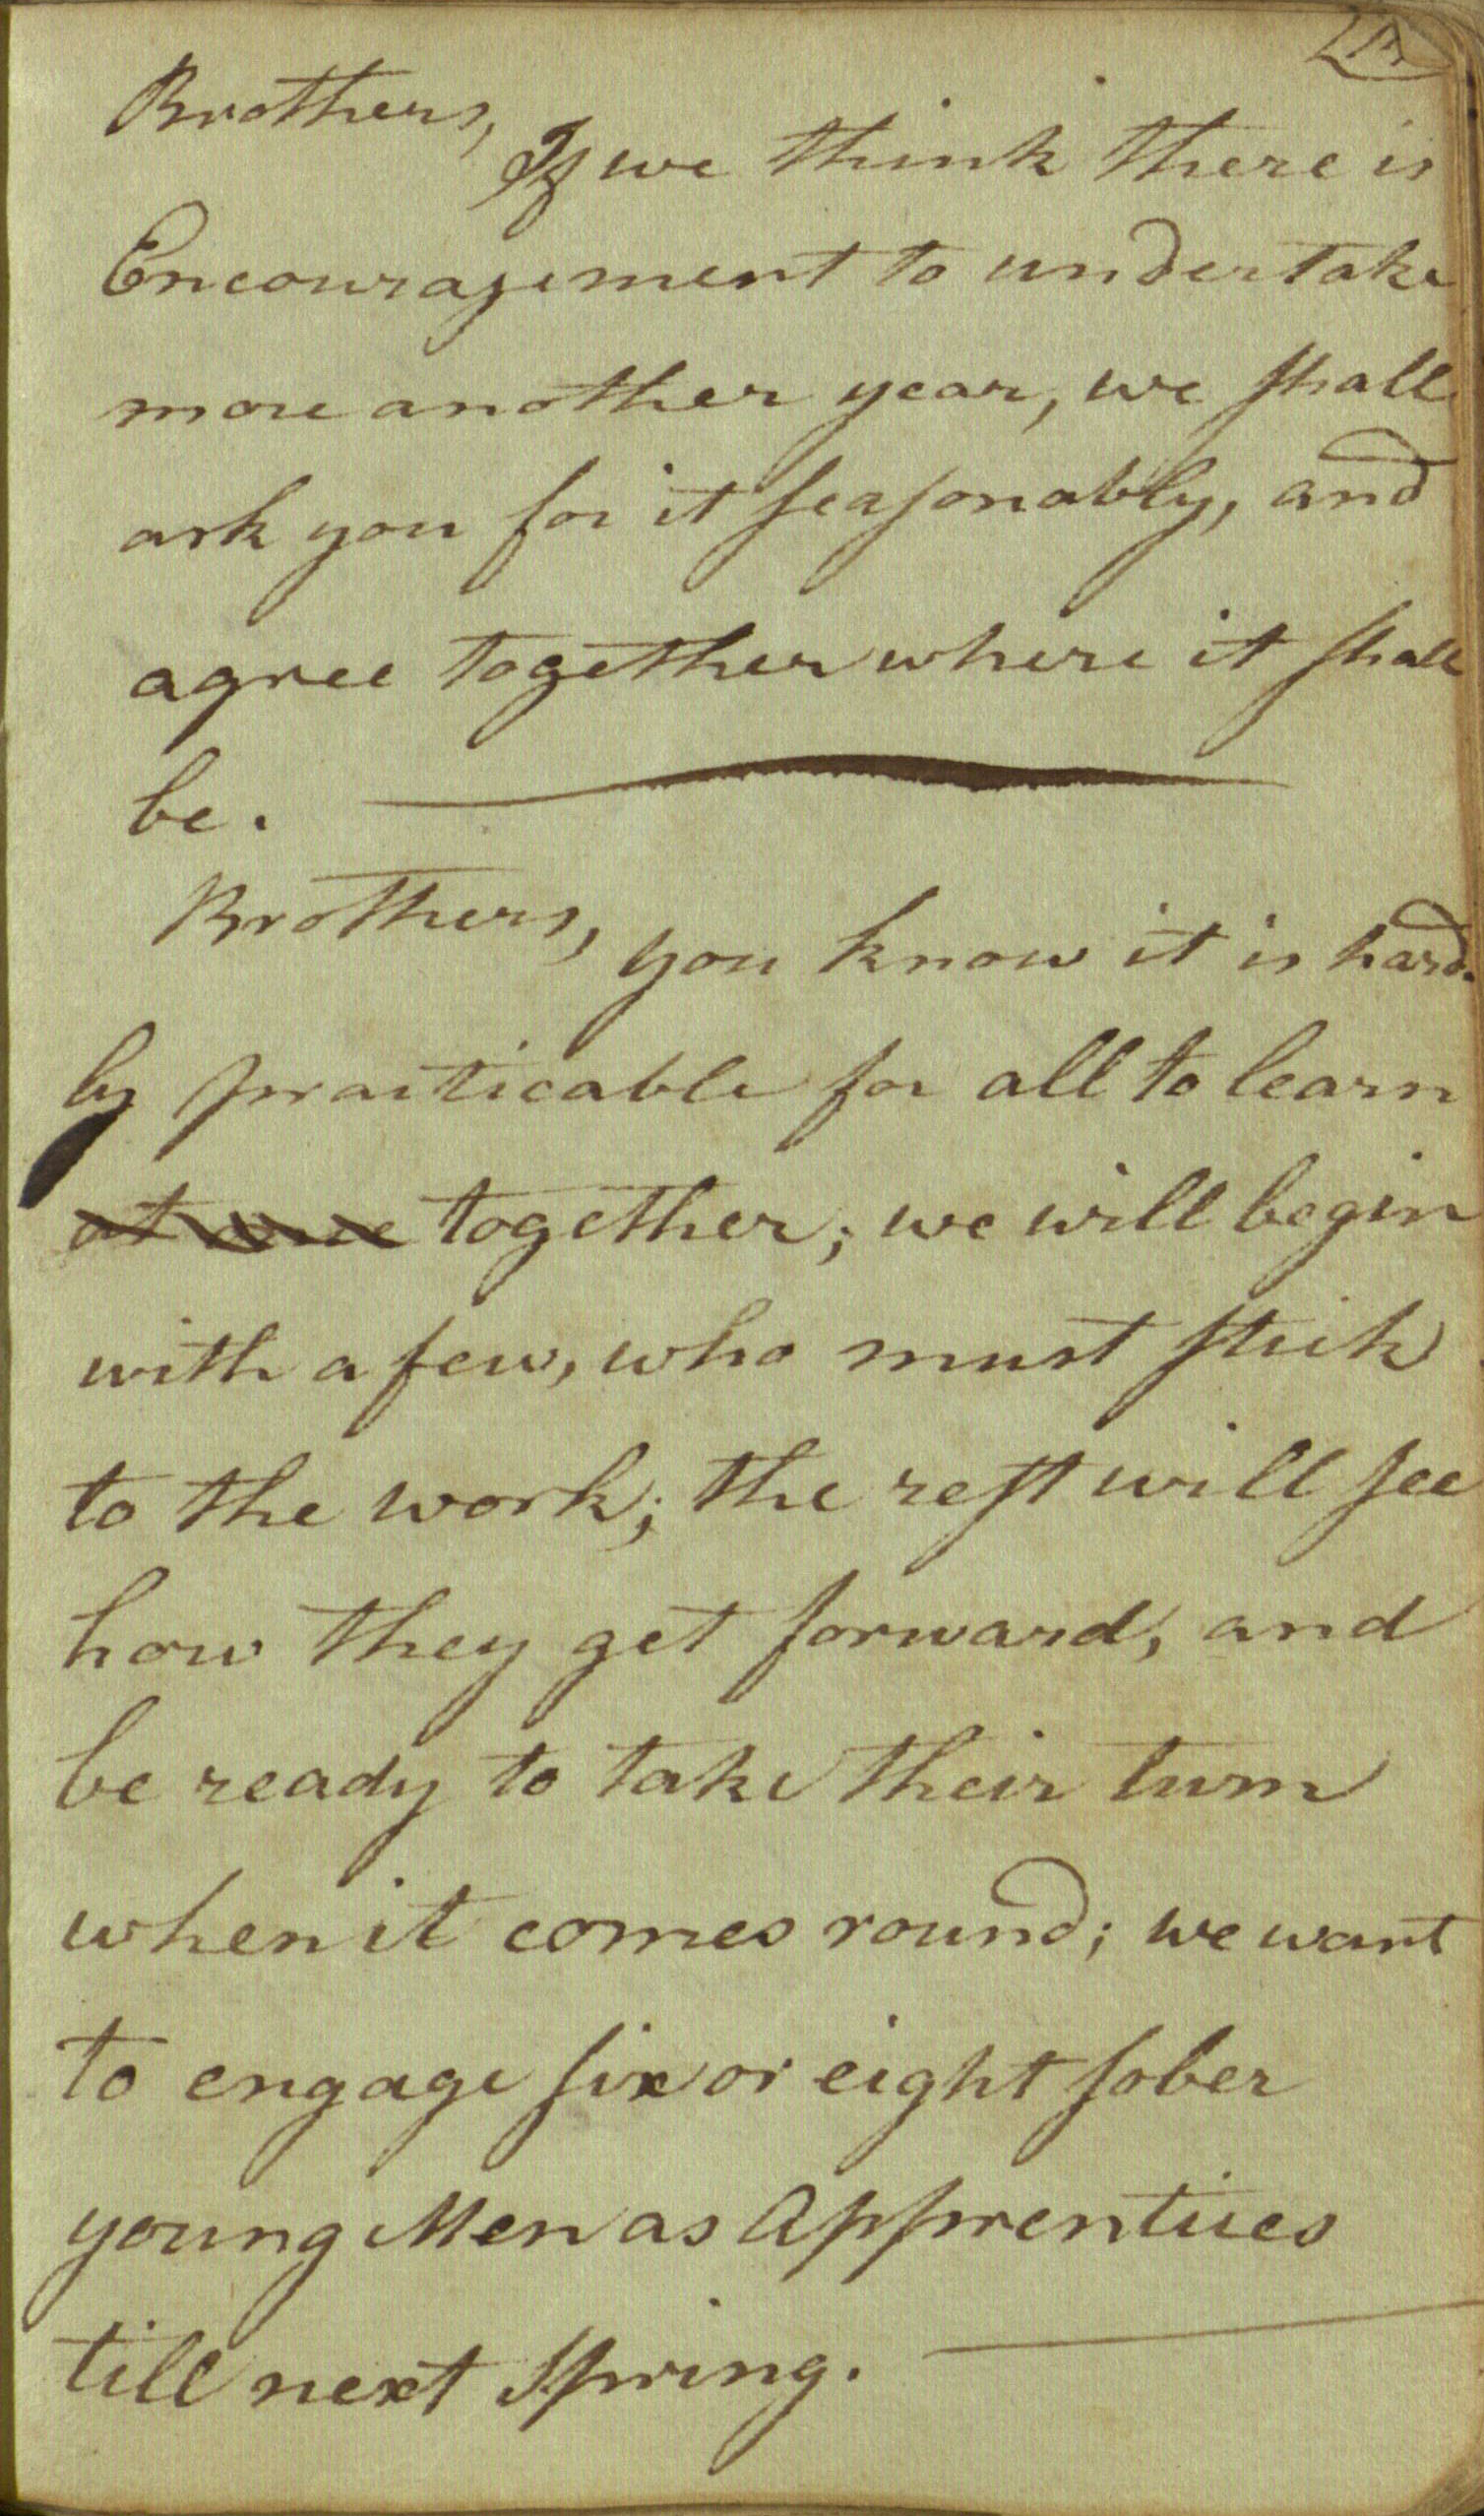 Brothers,
If we think there is
Encouragement to undertake
more another year, we shall
ask you for it seasonably, and
agree together where it shall
be.
Brothers, you know it is hard-
ly practicable for all to learn
at once together; we will begin
with a few, who must stick
to the work; the rest will see
how they get forward, and
be ready to take their turn
when it comes round; we want
to engage six or eight sober
young Men as Apprentices
till next Spring.